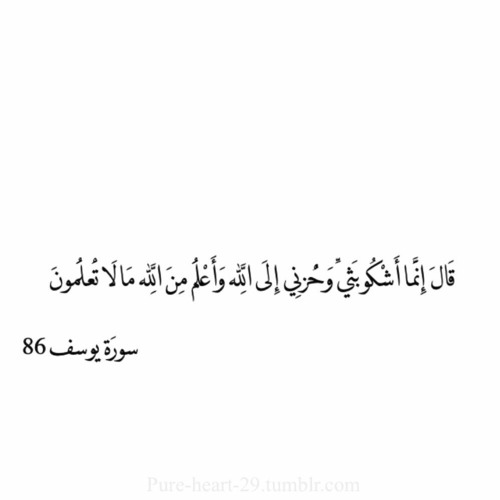 قَالَ إِنَّمَا أَشْكُو بَثِّي وَحُزْنِي إِلَى اللَّه وَأَعْلَمُ مِنَ اللَّه مَا لَا تُعلَمُونَ
سورَة يوسف 86
Pure-heart-29.tumblr.com